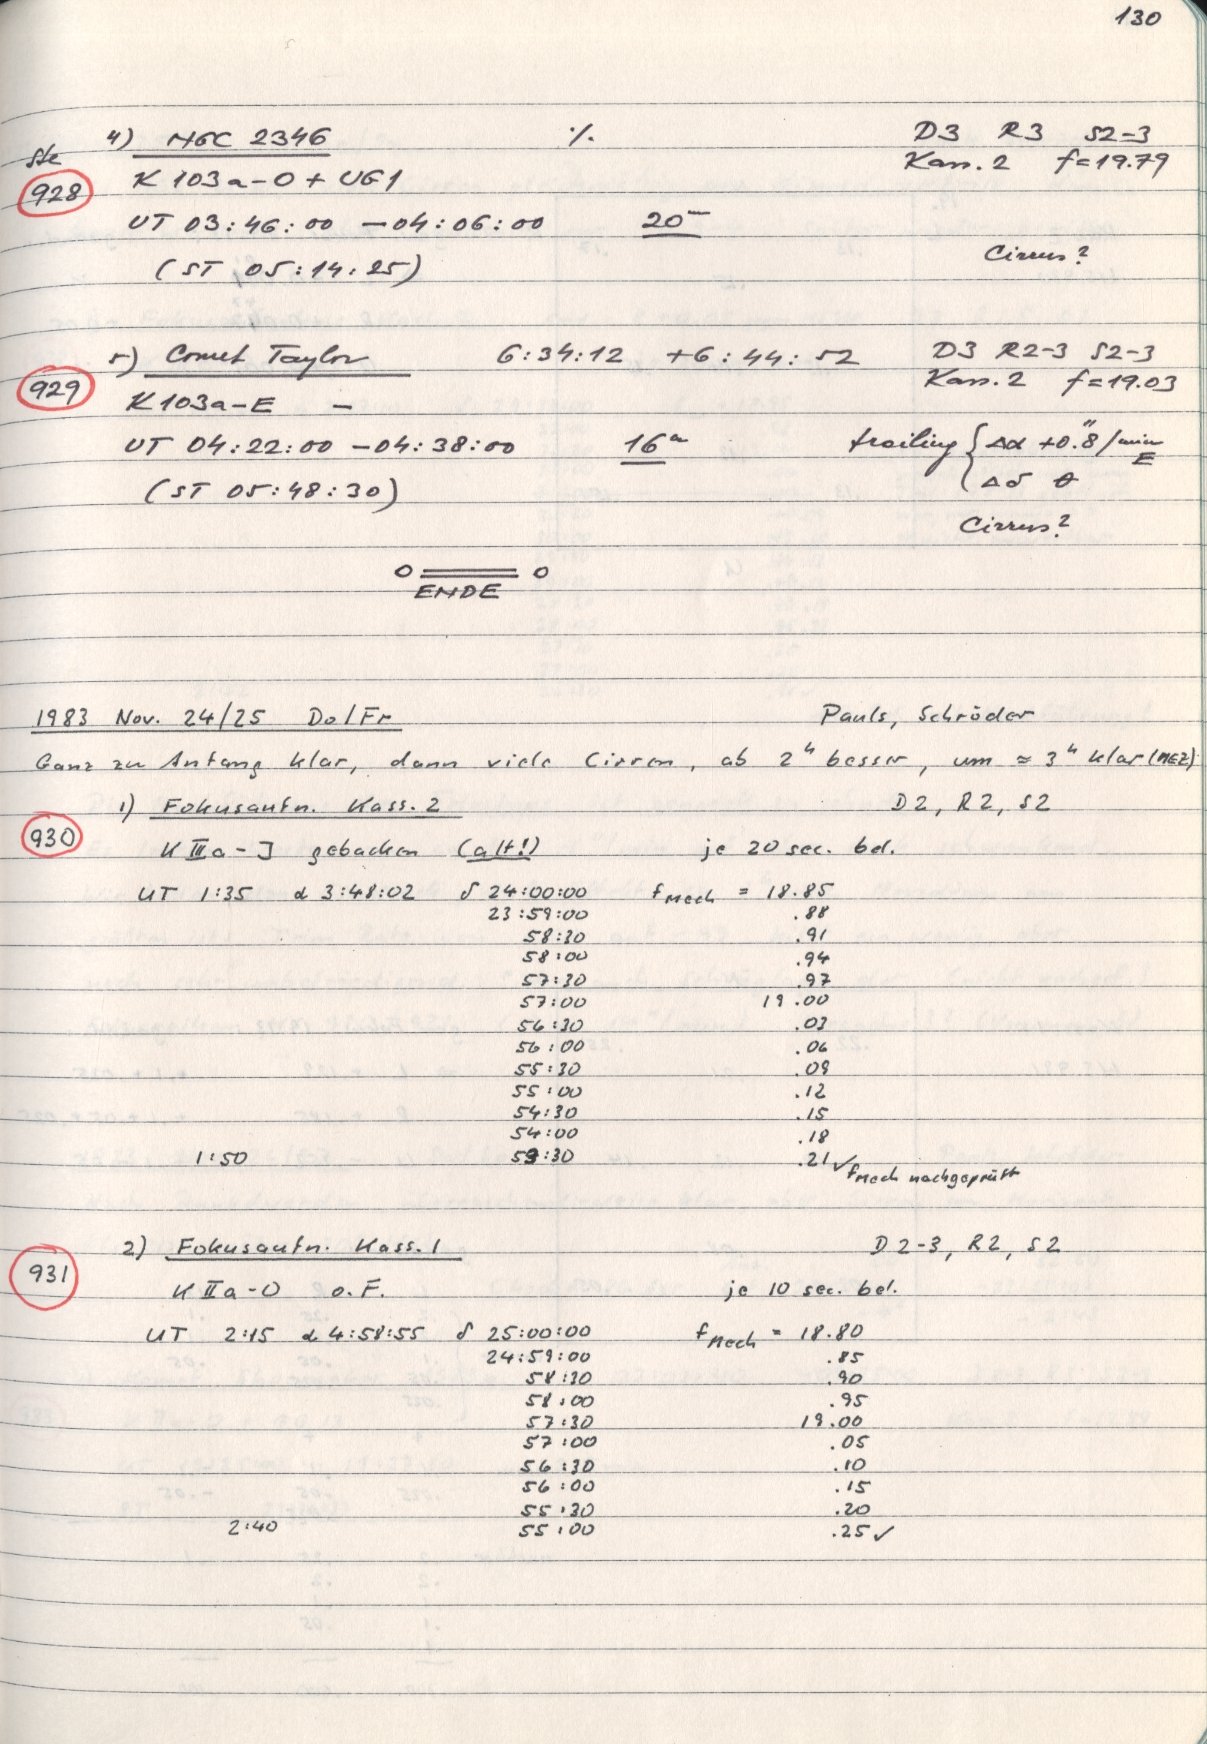 130
4) NGC 2346 ·/. D3 R3 S2-3
Ste Kass. 2 f=19.79
928 K 103a-O + UG1
UT 03:46:00 – 04:06:00 20m
(ST 05:14:25) Cirrus?
5) Comet Taylor 6:34:12 +6:44:52 D3 R2-3 S2-3
929 Kass. 2 f=19.03
K 103a-E –
UT 04:22:00 – 04:38:00 16m trailing { Δα +0."8/min E
(ST 05:48:30) Δδ 0
Cirrus?
o ═══ o
ENDE
1983 Nov. 24/25 Do/Fr Pauls, Schröder
Ganz zu Anfang klar, dann viele Cirren, ab 2h besser, um ≈ 3h klar (MEZ)
1) Fokusaufn. Kass. 2 D2, R2, S2
930
K IIIa-J gebacken (alt!) je 20 sec. bel.
UT 1:35 α 3:48:02 δ 24:00:00 fMech = 18.85
23:59:00 .88
58:30 .91
58:00 .94
57:30 .97
57:00 19.00
56:30 .03
56:00 .06
55:30 .09
55:00 .12
54:30 .15
54:00 .18
1:50 53:30 .21 ✓ fMech nachgeprüft
2) Fokusaufn. Kass. 1 D2-3, R2, S2
931
K IIa-O o.F. je 10 sec. bel.
UT 2:15 α 4:58:55 δ 25:00:00 fMech = 18.80
24:59:00 .85
58:30 .90
58:00 .95
57:30 19.00
57:00 .05
56:30 .10
56:00 .15
55:30 .20
2:40 55:00 .25 ✓